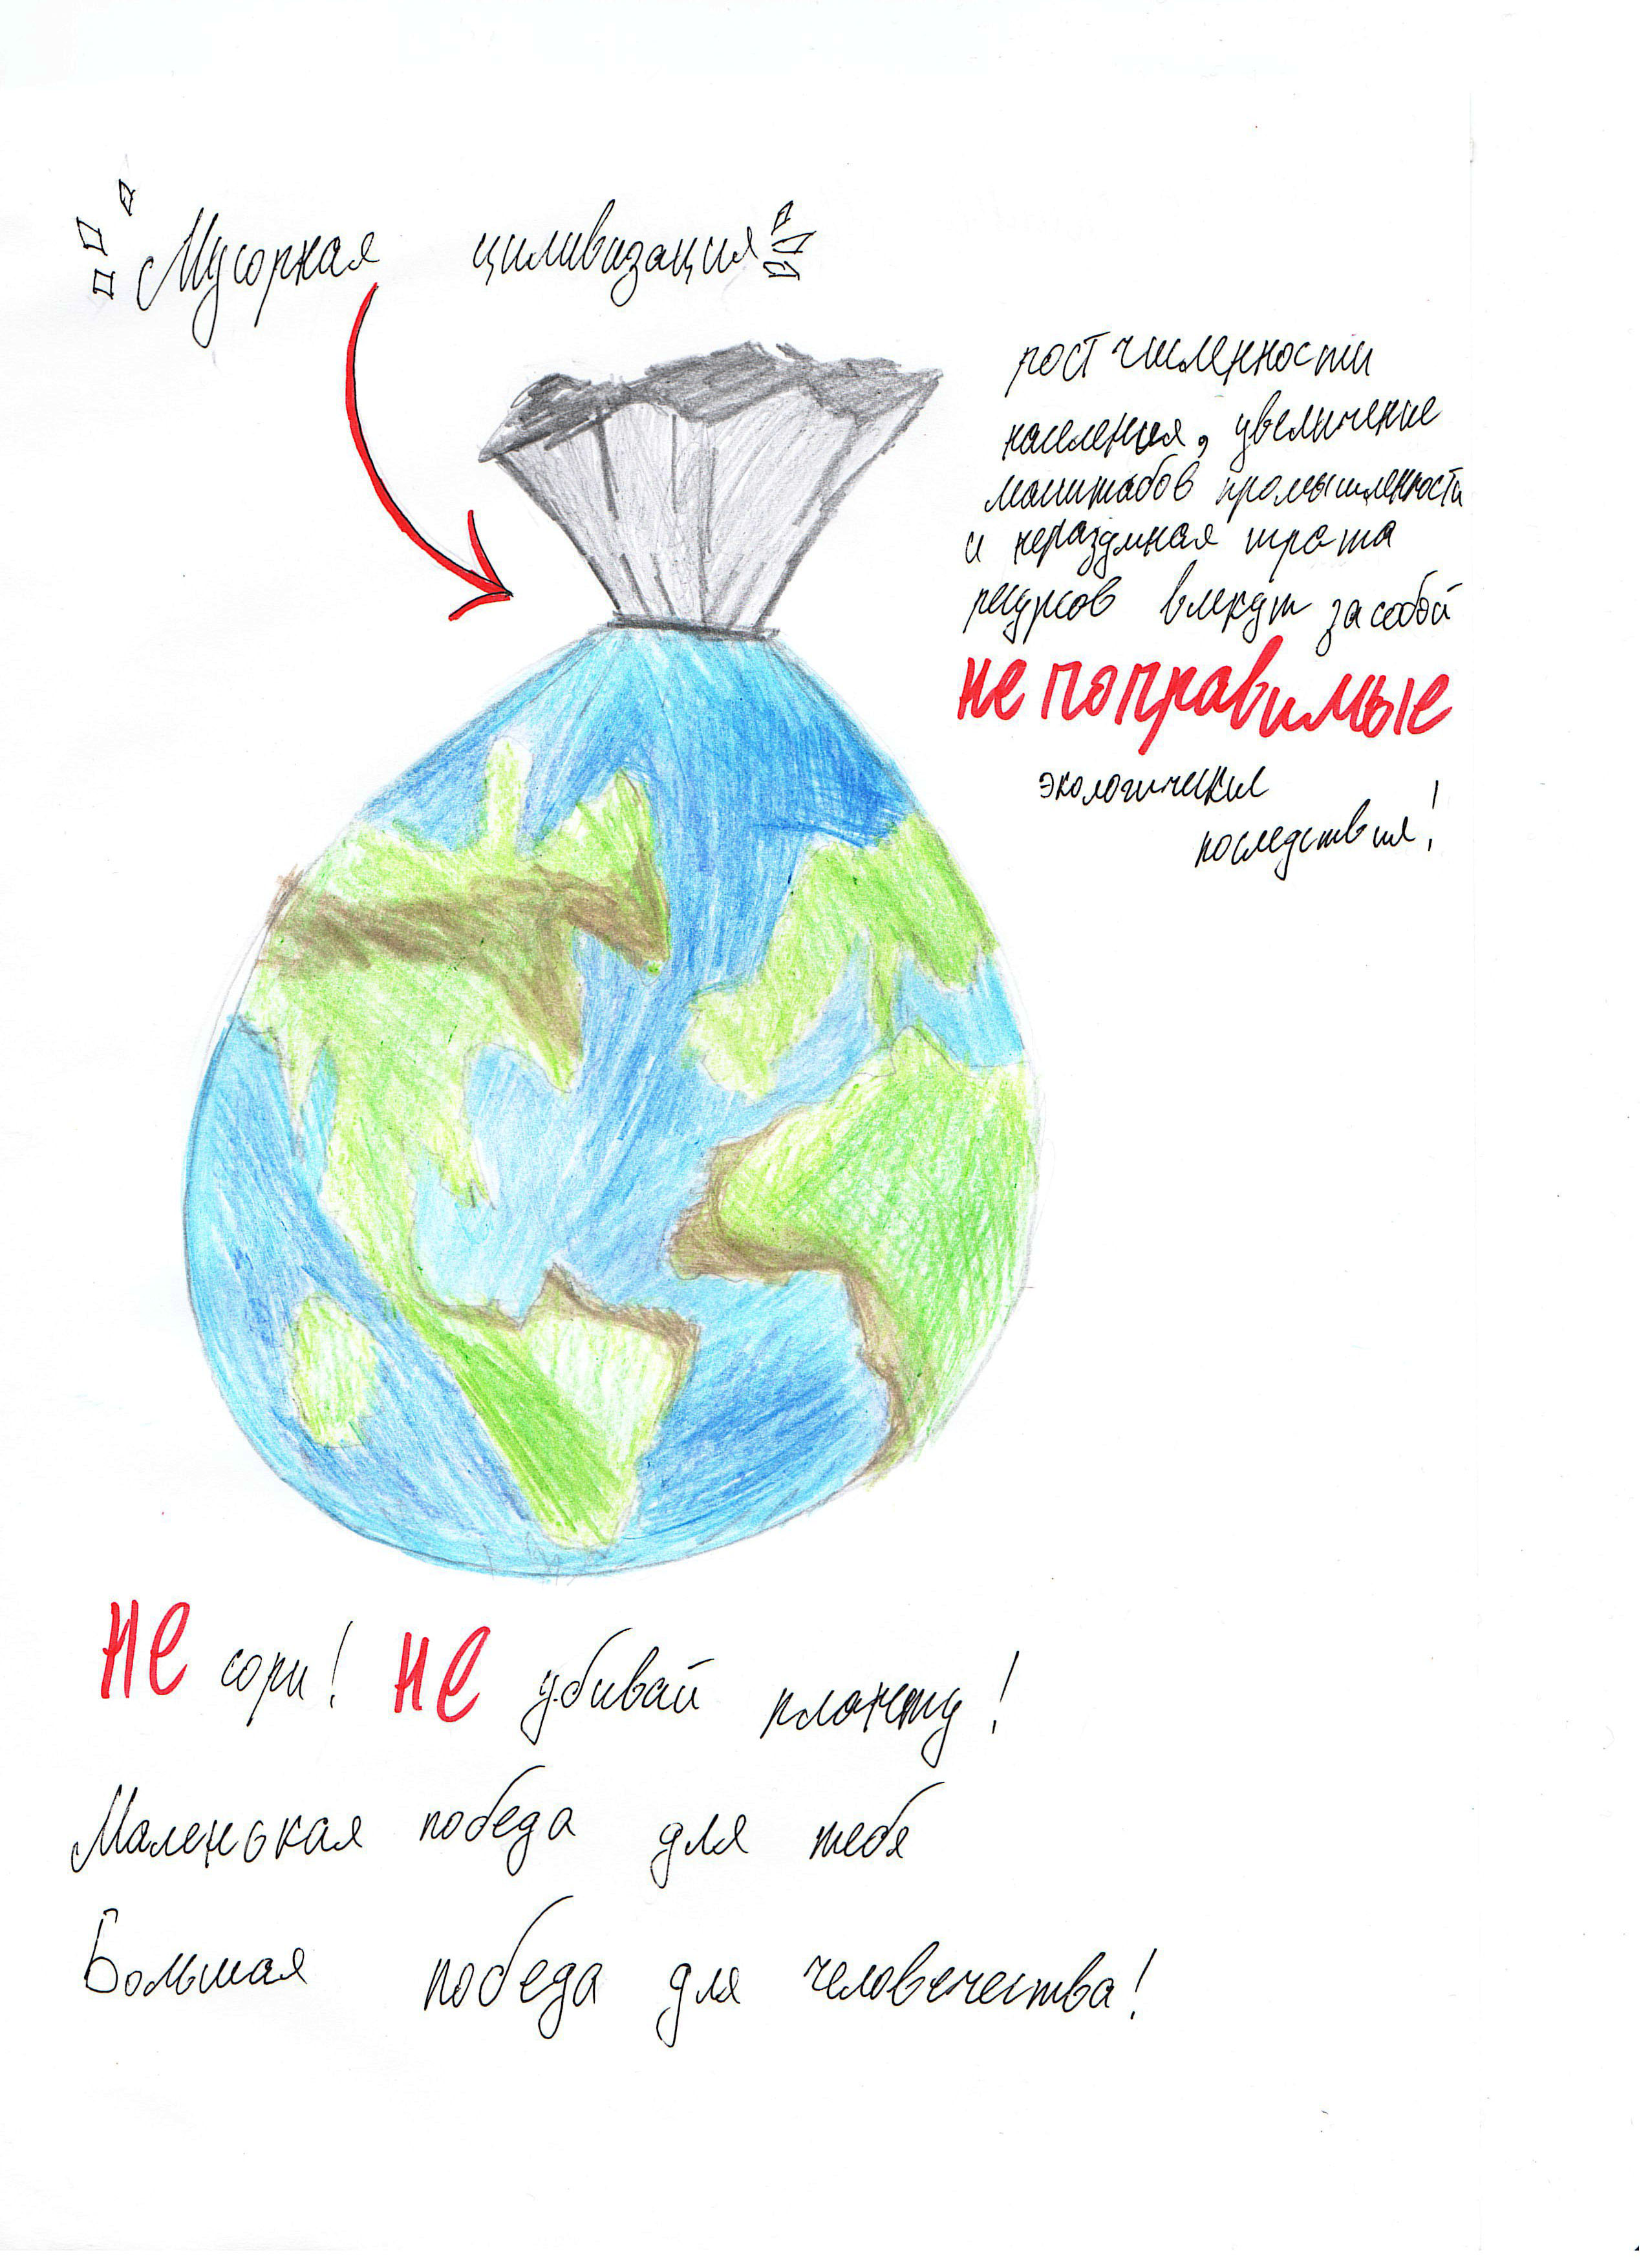 Мусорная циливизация
рост численности
населения, увеличение
масштабов промышленности
и неразумная трата
ресурсов влекут за собой
не поправимые
экологические
последствия!
Не сори! Не убивай планету!
Маленькая победа для тебя
Большая победа для человечества!